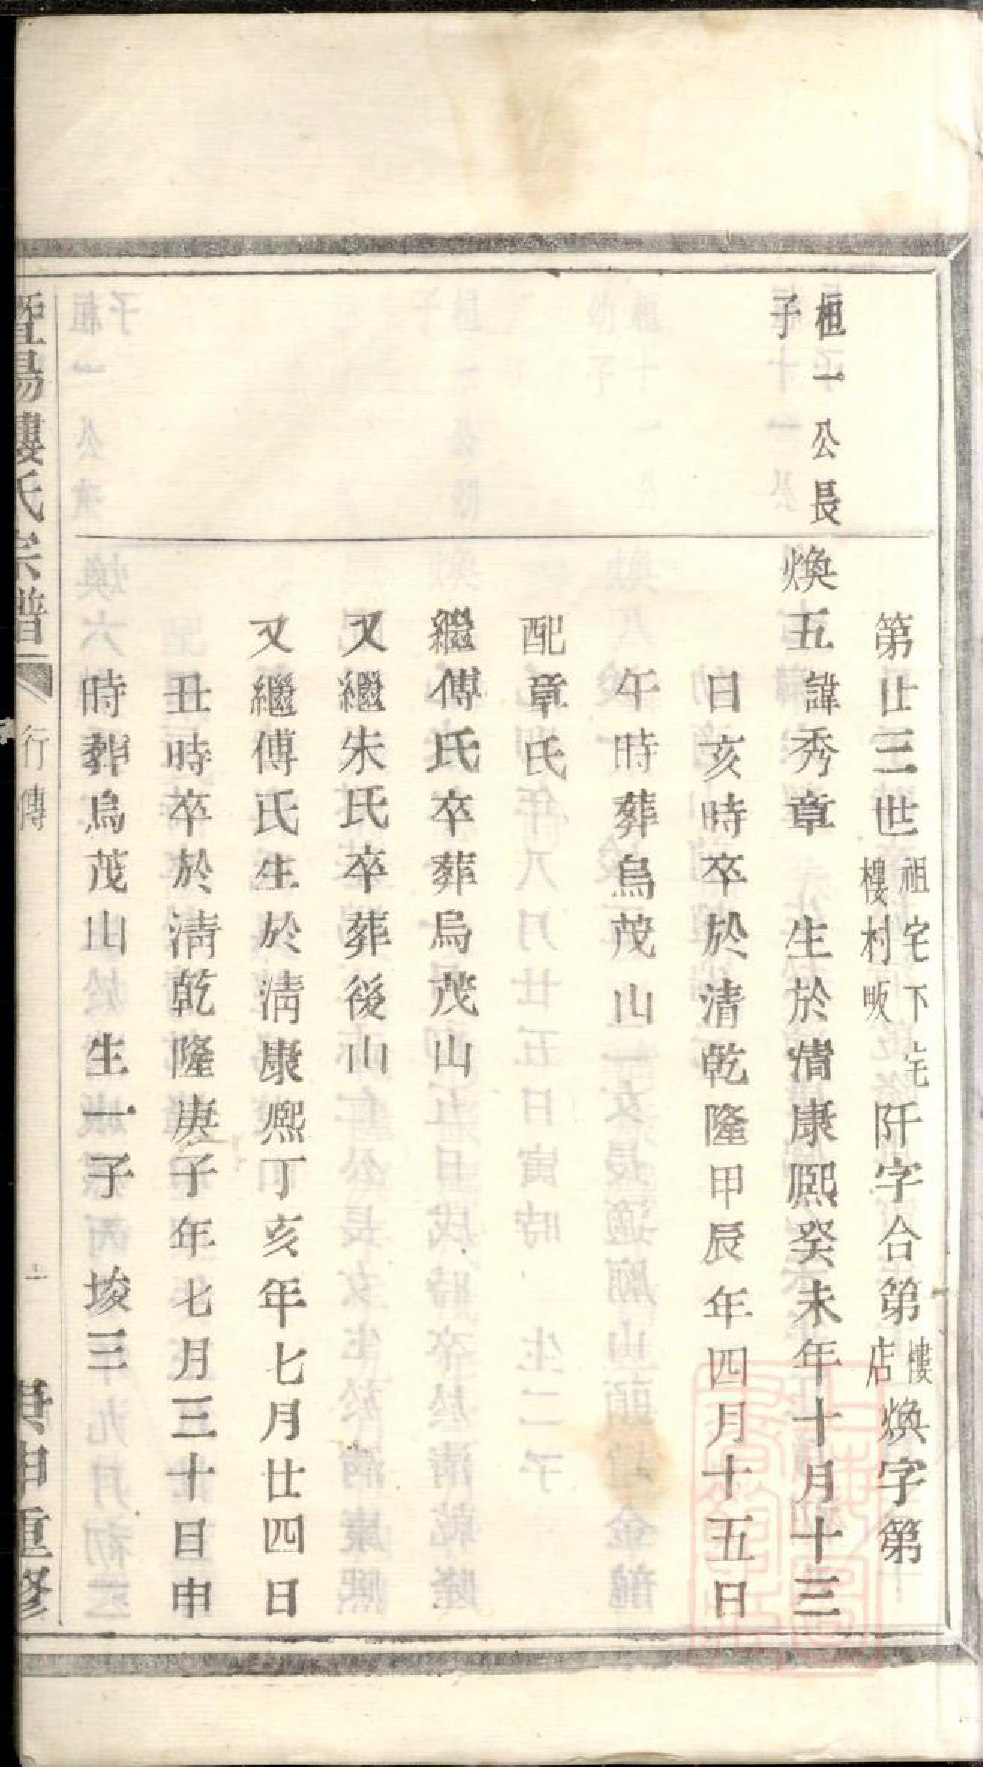 第廿三世祖宅下宅樓村畈阡字合第樓店煥字第
桓一公長
子
煥五諱秀章 生於清康熙癸未年十月十三
日亥時卒於清乾隆甲辰年四月十五日
午時葬烏茂山
配章氏
繼傅氏卒葬烏茂山
又繼朱氏卒葬後山
又繼傅氏生於清康熙丁亥年七月廿四日
丑時卒於清乾隆庚子年七月三十日申
時葬烏茂山 生一子 埈三
暨陽樓氏宗譜 行傳 庚申重修